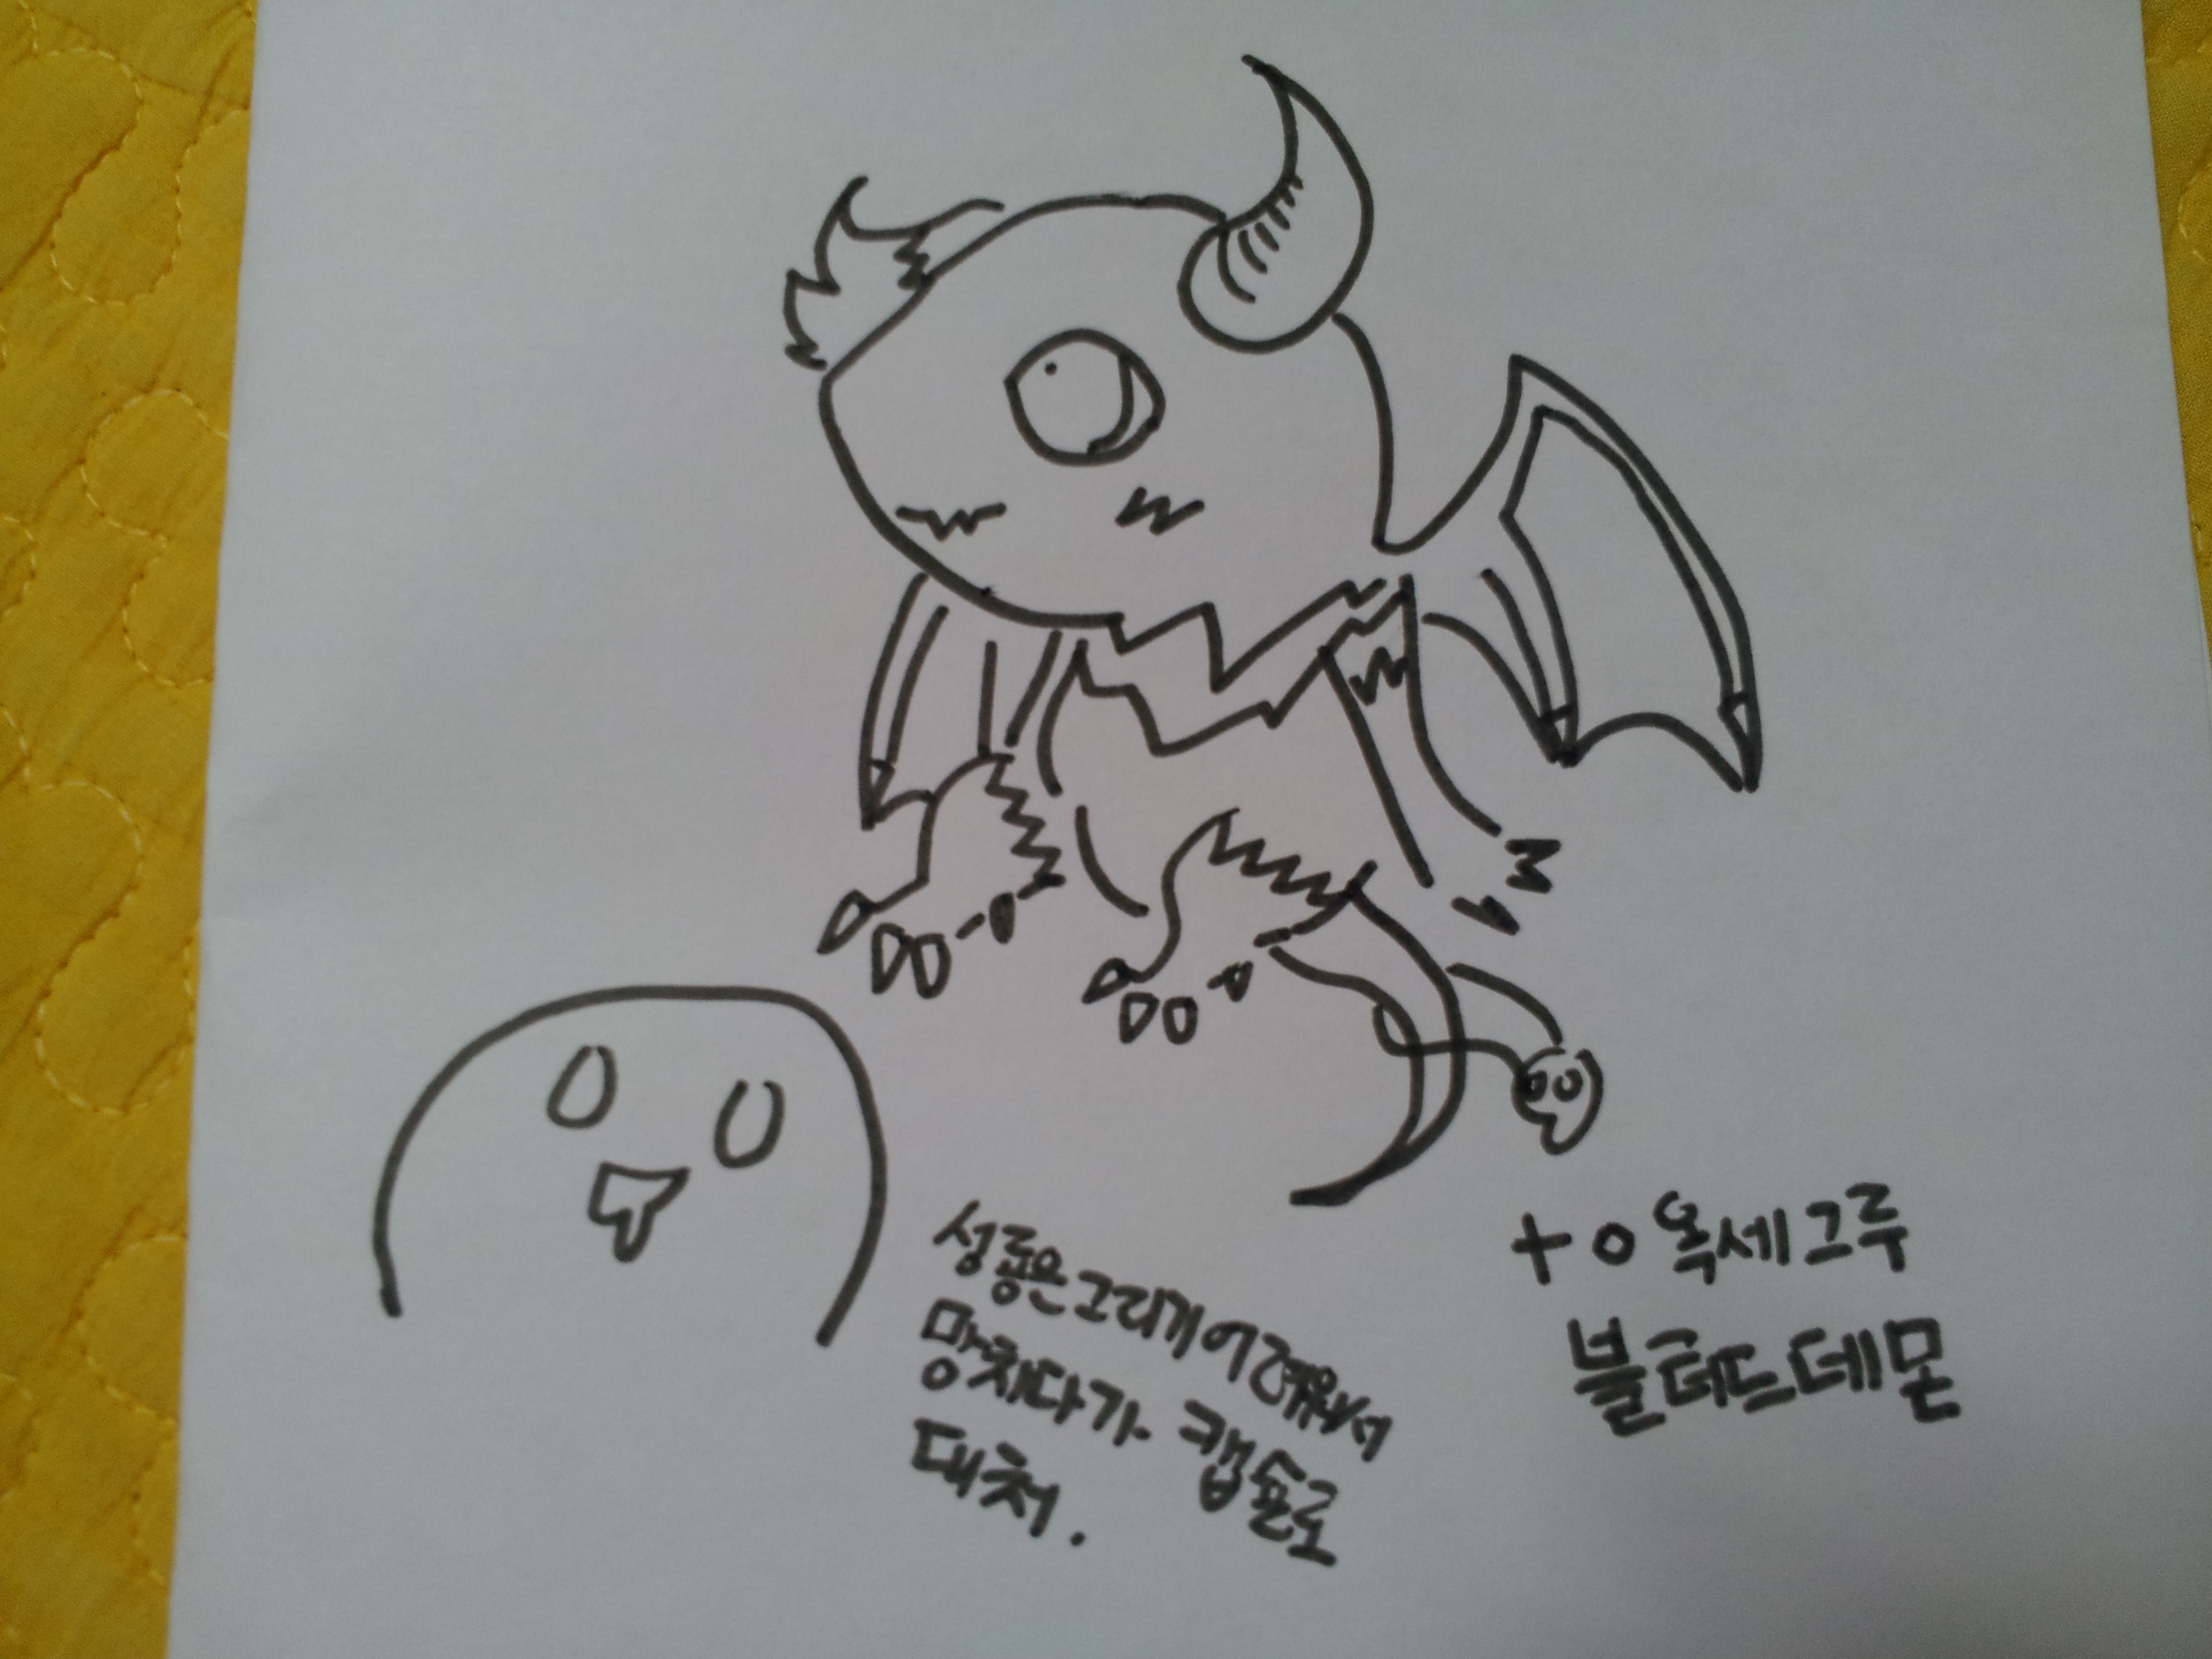 성룡은그리기어려워서
망치다가 캡슐로
대처.
+0 옥세그루
블러드데몬